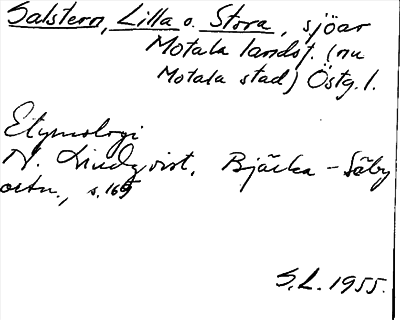 Salstern, Lilla o. Stora, sjöar
Motala landsf. (nu
Motala stad) Östg. l.
Etymologi
N. Lindqvist, Bjärka-Säby
ortn., s. 169
S.L. 1955.